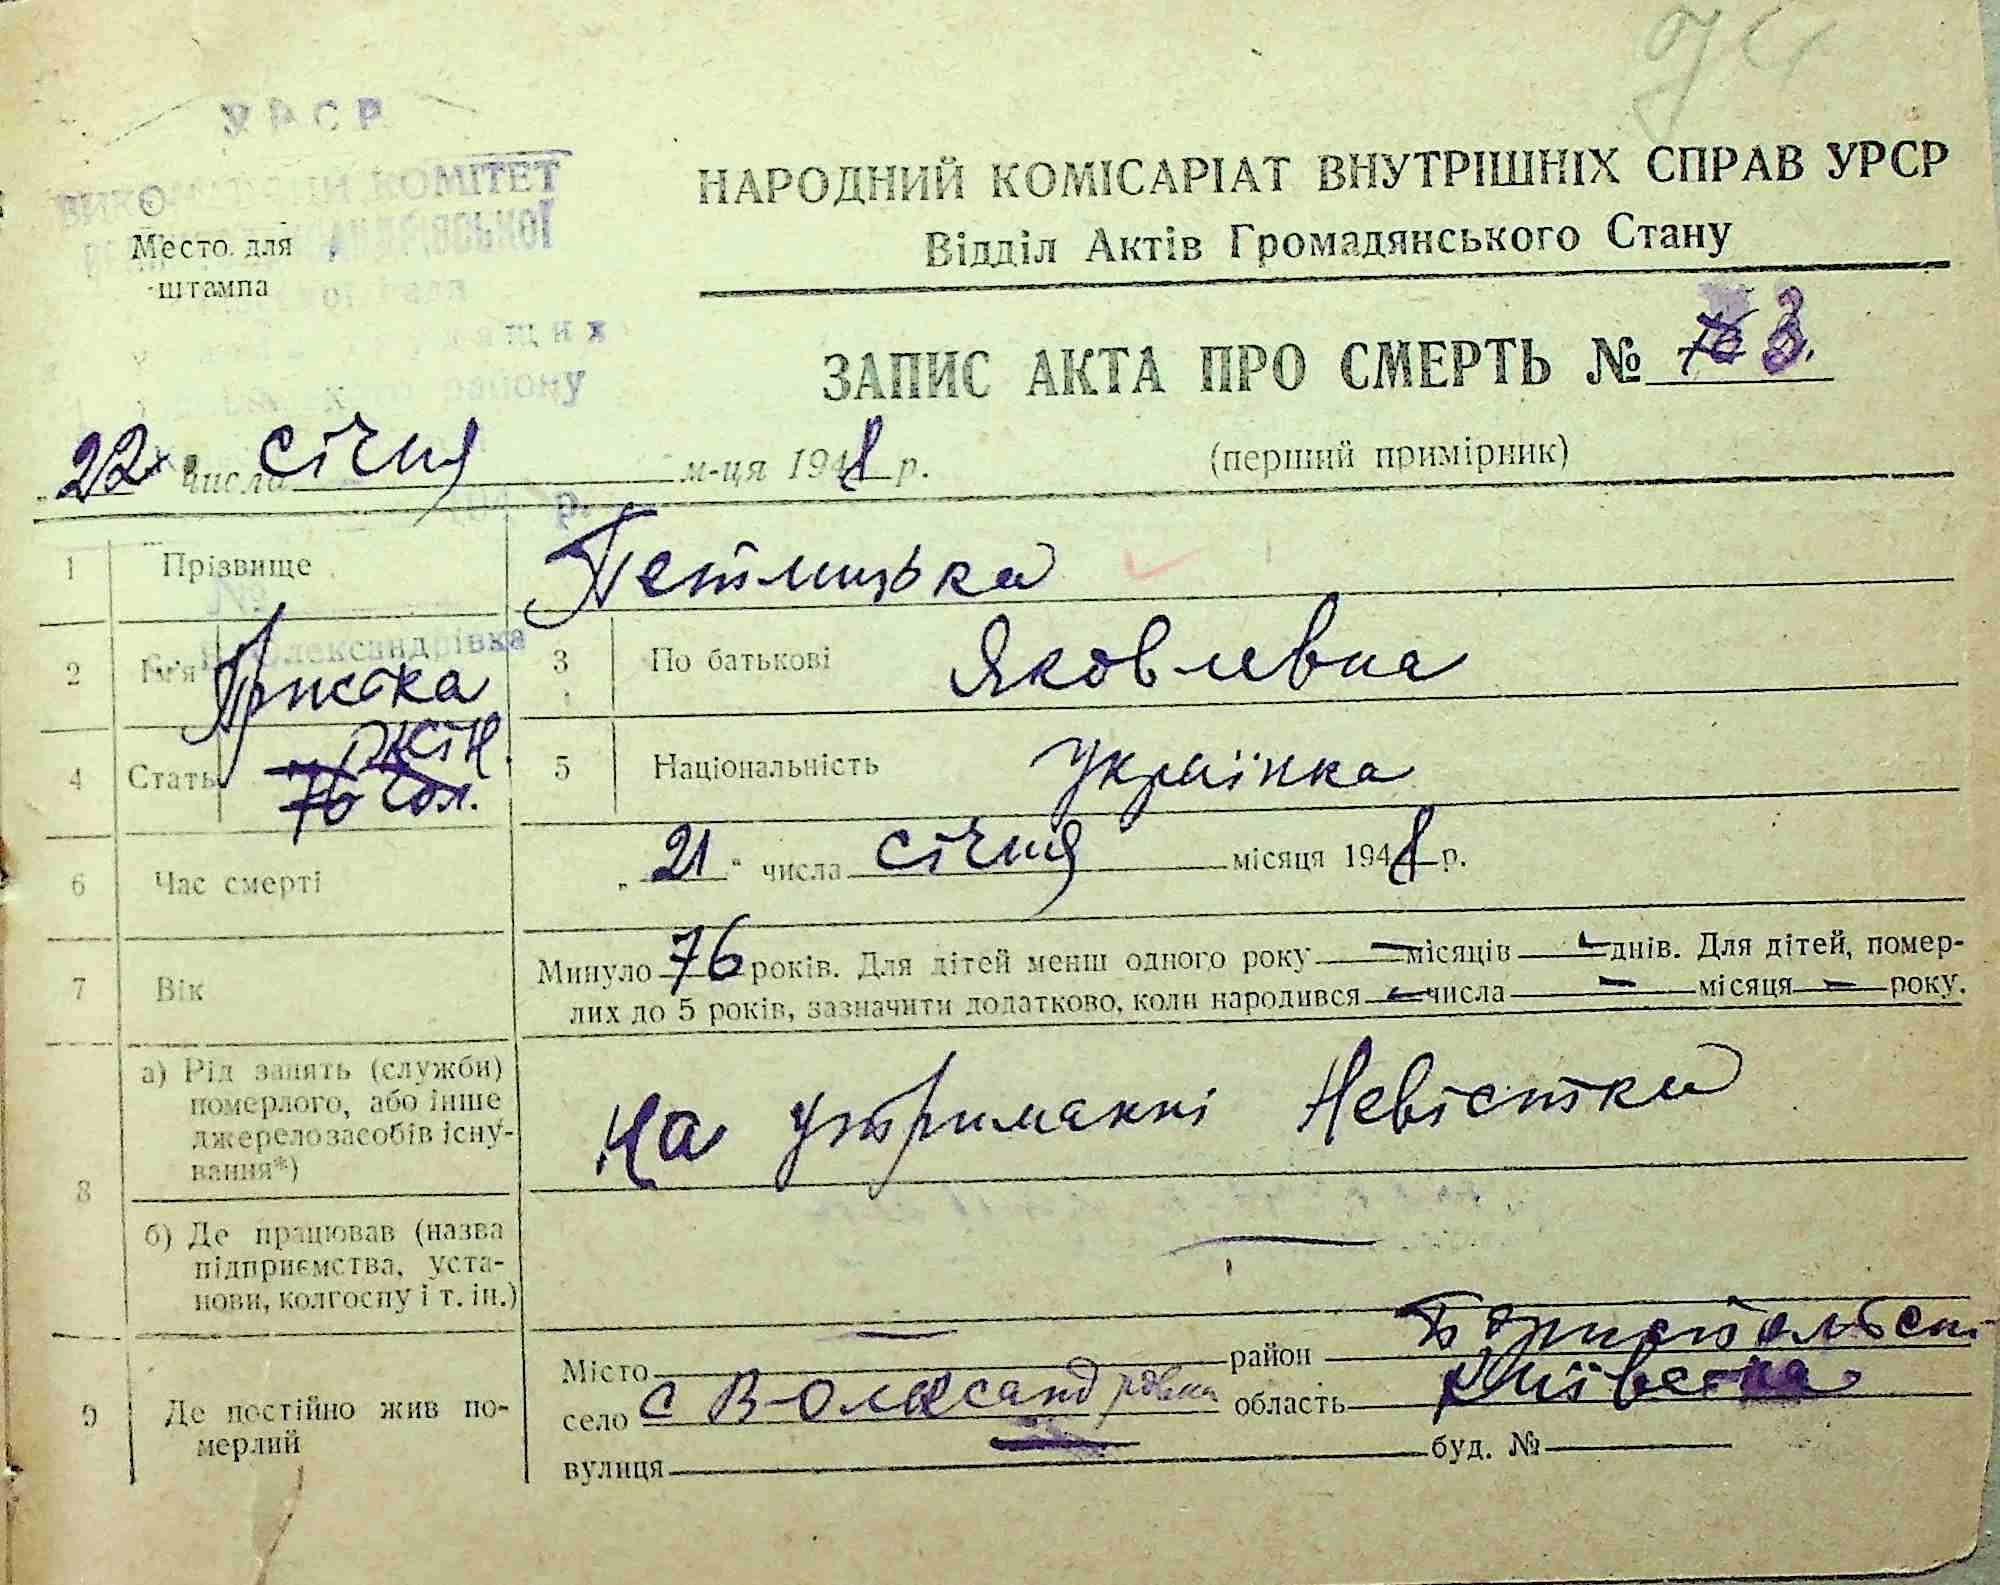 УРСР
ВИКОНАВЧИЙ КОМІТЕТ
Место для
штампа
району
НАРОДНИЙ КОМІСАРІАТ ВНУТРІШНІХ СПРАВ УРСР
Відділ Актів Громадянського Стану
ЗАПИС АКТА ПРО СМЕРТЬ № 3.
"22" числа січня м-ця 1948 р. (перший примірник)
1 Прізвище Петлицька
2 Ім'я Пріська 3 По батькові Яковлевна
Олександрівка
4 Стать жін. 76 чол. 5 Національність Українка
6 Час смерті "21" числа січня місяця 1948 р.
7 Вік Минуло 76 років. Для дітей менш одного року — місяців — днів. Для дітей, помер-
лих до 5 років, зазначити додатково, коли народився — числа — місяця — року.
8 а) Рід занять (служби)
померлого, або інше
джерело засобів існу-
вання*)
На утриманні Невістки
б) Де працював (назва
підприємства, уста-
нови, колгоспу і т. ін.)
—
9 Де постійно жив по-
мерлий
Місто — район Бориспольськ
село с В-Олександрівка область Київська
вулиця — буд. №